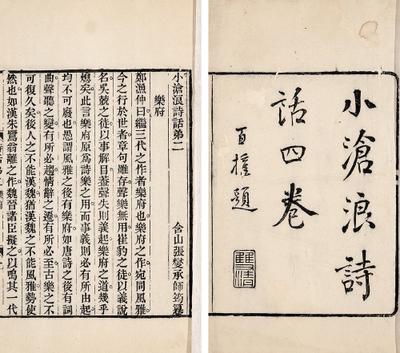 小滄浪詩
話四卷
百摧題
小滄浪詩話第二
含山張燮承師筠纂
樂府
鄭漁仲曰繼三代之作者樂府也樂府之作宛同風雅
今之行於世者章句雖存聲樂無用崔豹之徒以義說
名吳兢之徒以事解目蓋聲失則義起樂府之道幾乎
熄矣此言樂府原爲詩樂之用而事義則必有所由起
均不可廢也愚謂風雅之後有樂府如唐詩之後有詞
曲聲聽之變有所必趨情辭之遷有所必至古樂之不
可復久矣後人之不能漢魏猶漢魏之不能風雅勢使
然也如漢朱鷺翁離之作魏晉諸臣擬之以鳴其一代